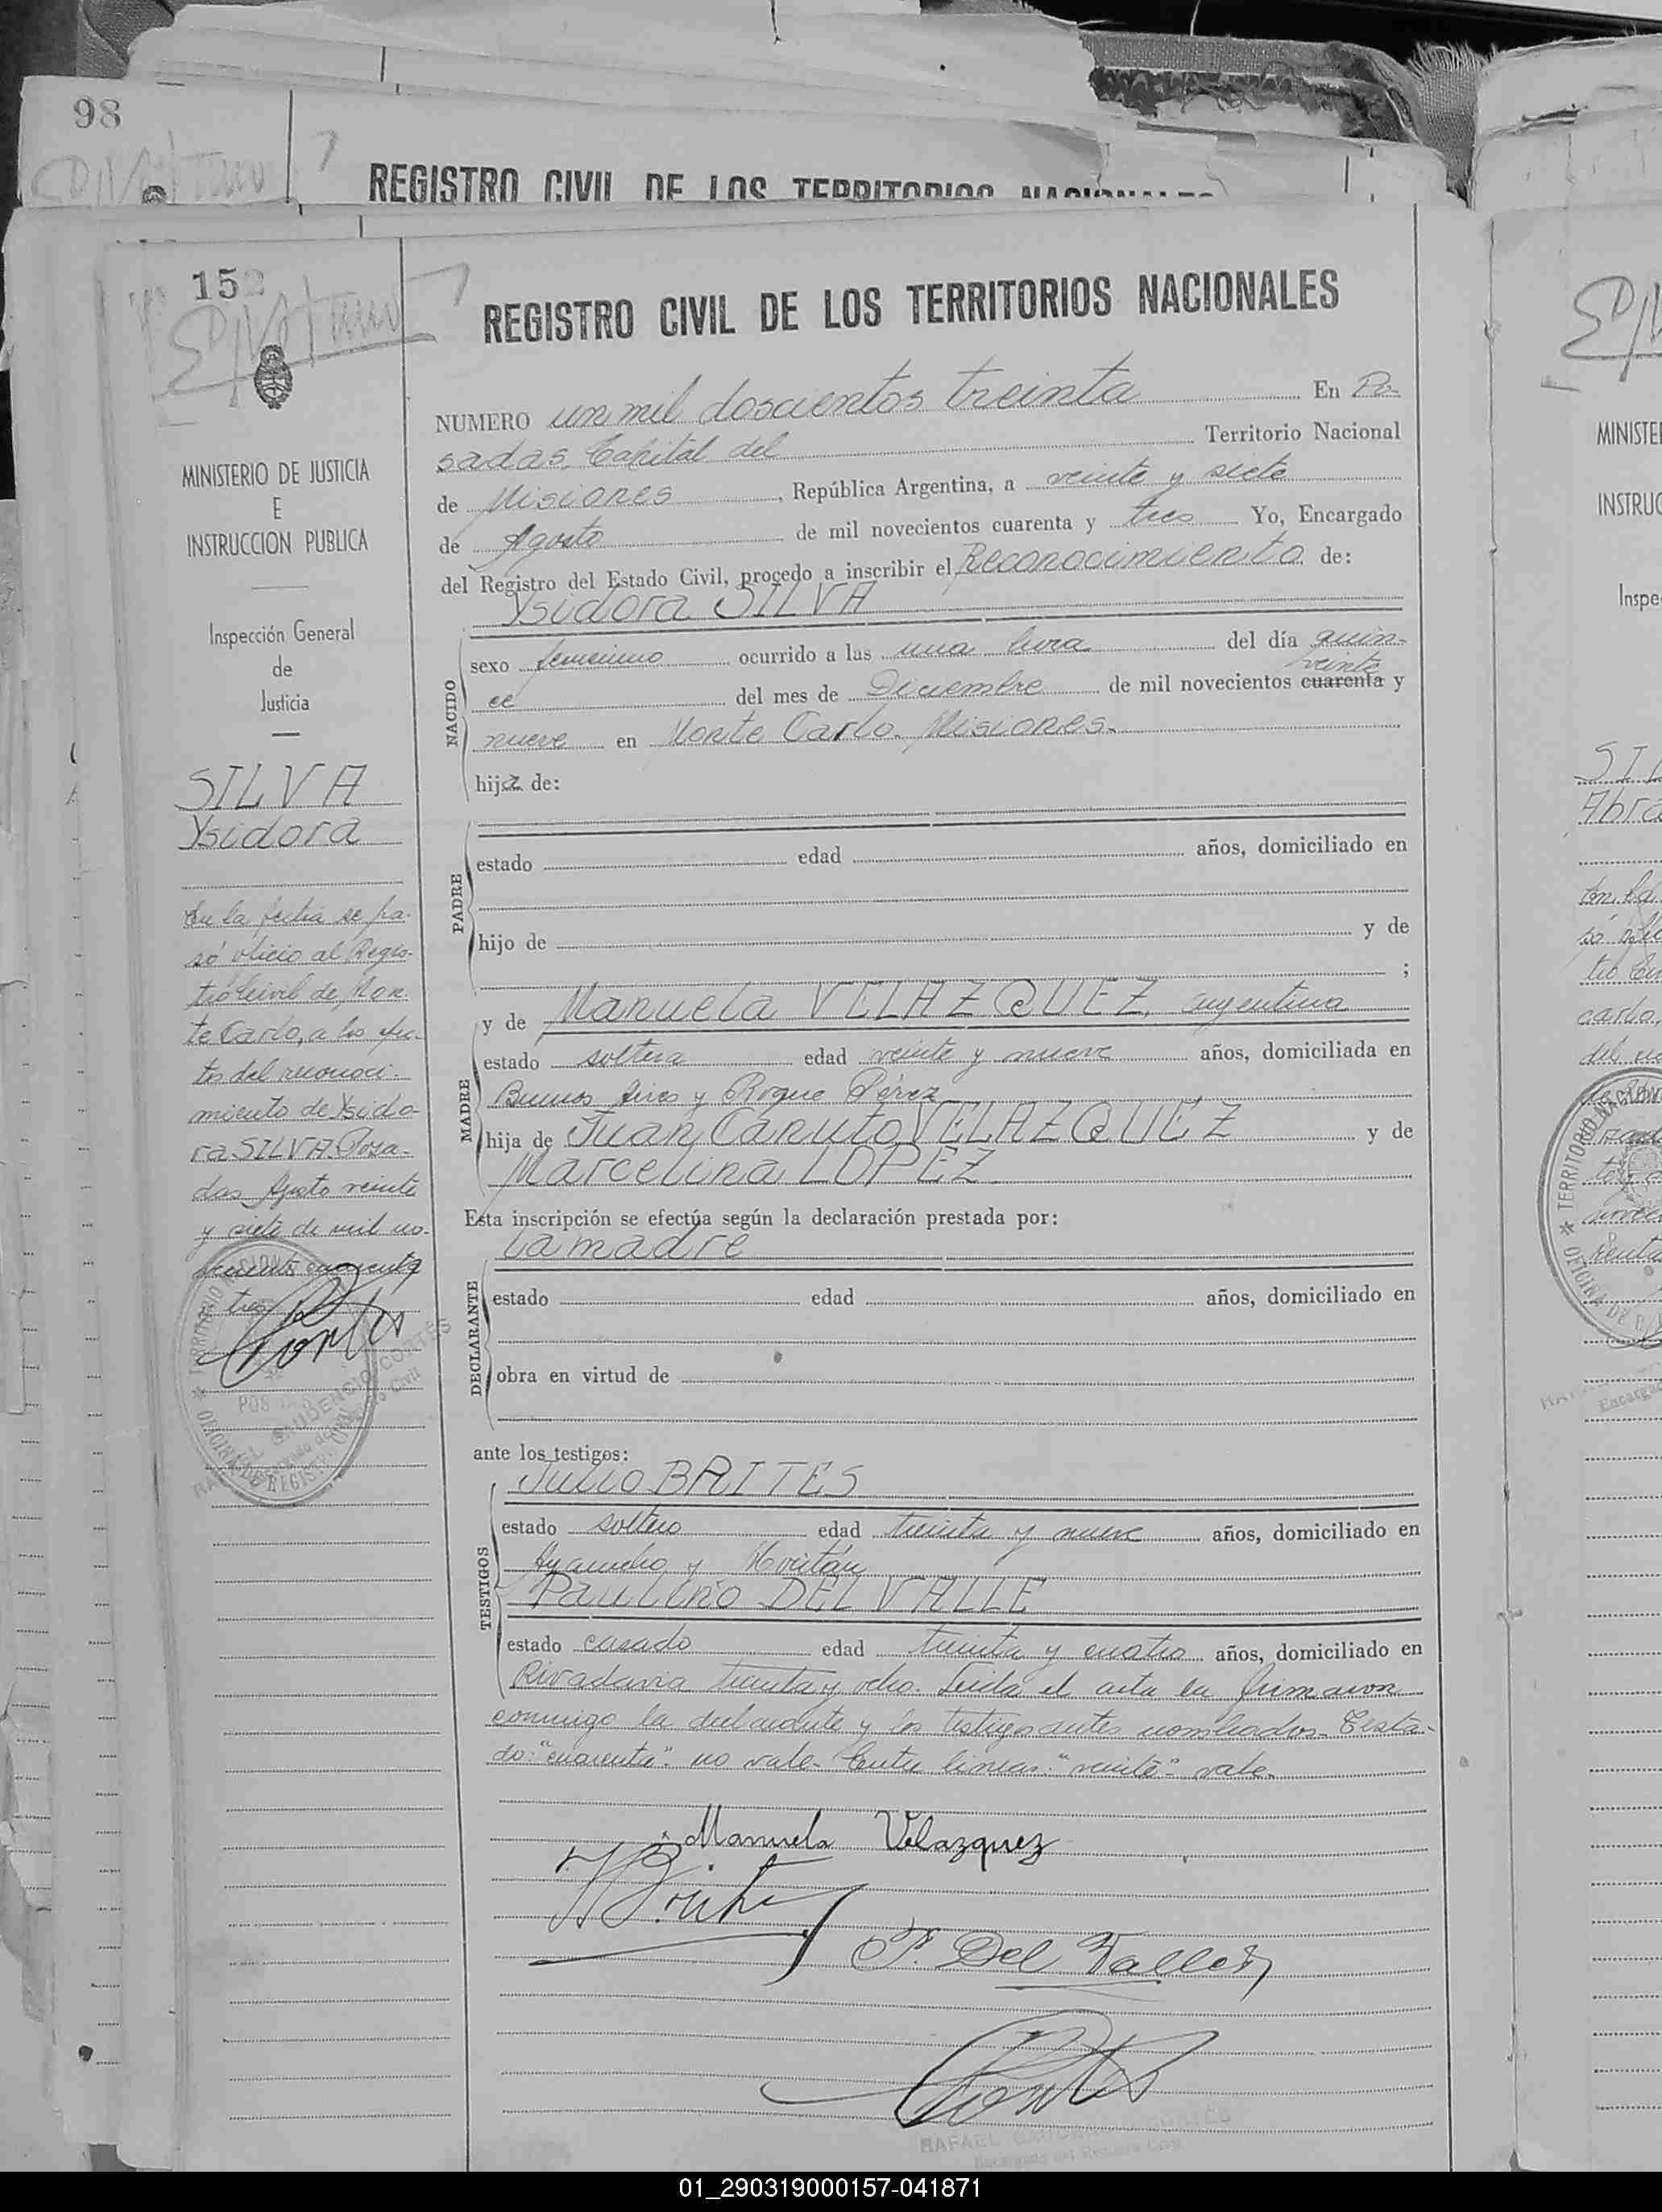 98
REGISTRO CIVIL DE LOS TERRITORIOS NACIONALES
152
REGISTRO CIVIL DE LOS TERRITORIOS NACIONALES
MINISTERIO DE JUSTICIA
E
INSTRUCCION PUBLICA
Inspección General
de
Justicia
SILVA
Ysidora
En la fecha se pa-
só oficio al Regis-
tro Civil de Mon
te Carlo, a los efec-
tos del reconoci-
miento de Ysido-
ra SILVA. Posa-
das Agosto veinte
y siete de mil no-
vecientos cuarenta
y tres
NUMERO un mil doscientos treinta En Po-
sadas, Capital del Territorio Nacional
de Misiones, República Argentina, a veinte y siete
de Agosto de mil novecientos cuarenta y tres Yo, Encargado
del Registro del Estado Civil, procedo a inscribir el Reconocimiento de:
Ysidora SILVA
NACIDO
sexo femenino ocurrido a las una hora del día quin-
veinte
ce del mes de Diciembre de mil novecientos cuarenta y
nueve en Monte Carlo. Misiones.
hija de:
PADRE
estado edad años, domiciliado en
hijo de y de
;
y de Manuela VELAZQUEZ, argentina
MADRE
estado soltera edad veinte y nueve años, domiciliada en
Buenos Aires y Roque Pérez
hija de Juan Canuto VELAZQUEZ y de
Marcelina LOPEZ.
Esta inscripción se efectúa según la declaración prestada por:
la madre
DECLARANTE
estado edad años, domiciliado en
obra en virtud de
ante los testigos:
Julio BRITES
TESTIGOS
estado soltero edad treinta y nueve años, domiciliado en
Ayacucho y
Paulino DEL VALLE
estado casado edad treinta y cuatro años, domiciliado en
Rivadavia treinta y ocho. Leída el acta la firmaron
conmigo la declarante y los testigos antes nombrados. Testa-
do: "cuarenta" no vale. Entre líneas: "veinte" vale.
Manuela Velazquez
P. Del Valle
Cortés
RAFAEL GAUDENCIO CORTÉS
Encargado del Registro Civil
MINISTE
INSTRUC
Inspe
SIL
Abra
01_290319000157-041871